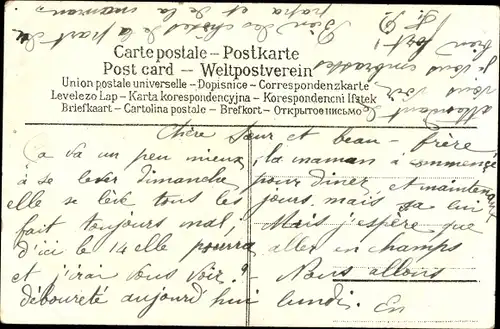 Carte postale – Postkarte
Post card — Weltpostverein
Union postale universelle – Dopisnice – Correspondenzkarte
Levelezo Lap – Karta korespondencyjna – Korespondencni lístek
Briefkaart – Cartolina postale – Brefkort – Открытое письмо
Chère Sœur et beau-frère
Ça va un peu mieux, la maman à commencé
à se lever dimanche pour diner, et maintenant
elle se lève tous les jours, mais ça lui
fait toujours mal, Mais j'espère que
d'ici le 14 elle pourra aller en champs
et j'irai vous voir. Nous allons
déboureté aujourd'hui lundi. En
attendant de
vous voir
je vous embrasse
bien fort!
Bien des choses de la part du
papa et de la maman